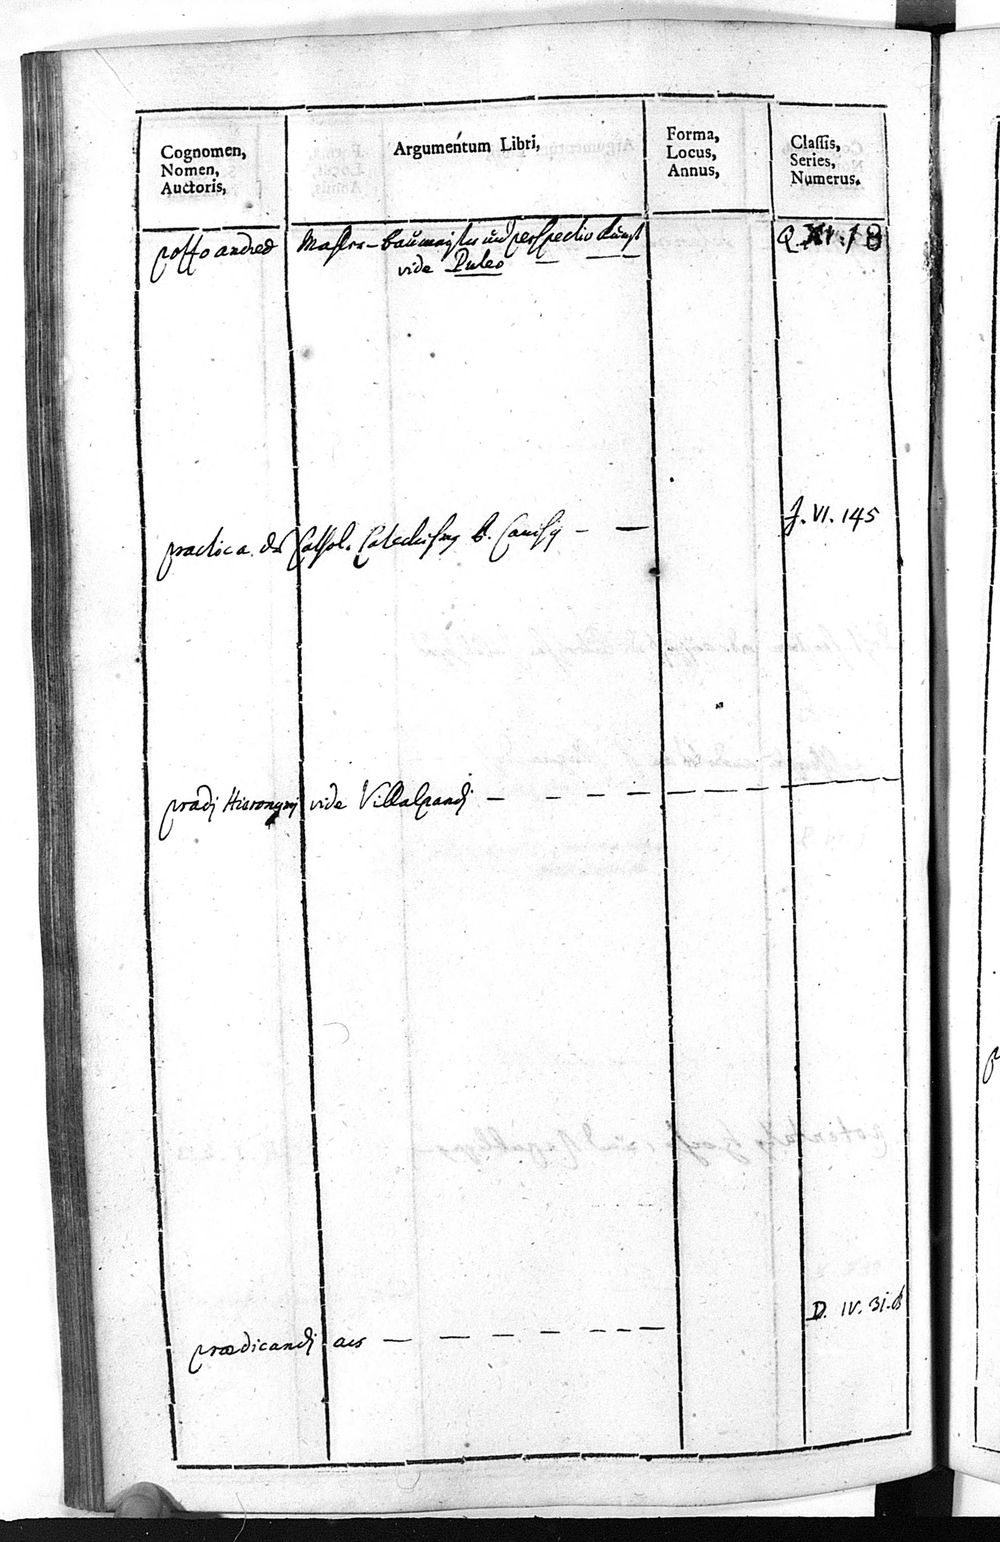 Cognomen,
Nomen,
Auctoris,
Argumentum Libri,
Forma,
Locus,
Annus,
Classis,
Series,
Numerus.
potzo andreæ Mahler-baumeister und perspectiv Kunst Q. XI. 18
vide Puteo
practica. der Cathol. Catechismus b. Canisy — — J. VI. 145
pradj Hieronymj vide Villalpandj — — — — —
prædicandj ars — — — — — — — D. IV. 31.